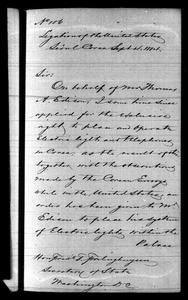 No 106
Legation of the United States
Seoul Corea Sept 4, 1884.
Sir:
On behalf of Mr Thomas
A. Edison, I some time since
applied for the exclusive
right to place and operate
Electric light and telephones
in Corea, as the result of
together with the observations
made by the Corean Envoys
while in the United States, an
order has been given to Mr
Edison to place his system
of Electric lights within the
Palace
Hon. Fred'k T. Frelinghuysen
Secretary of State
Washington D.C.